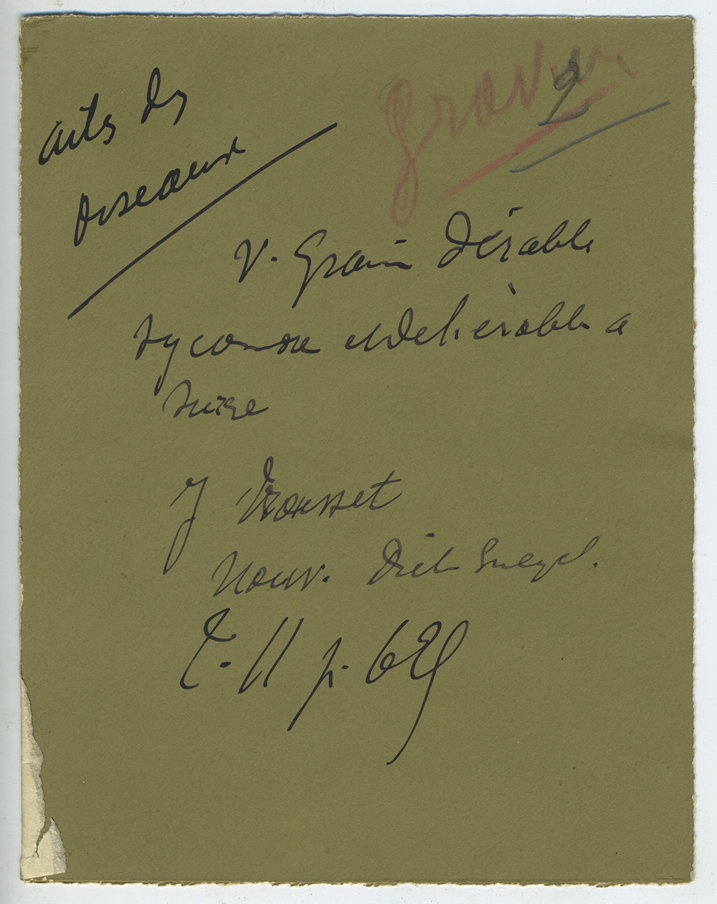 arts des
oiseaux
gravure
2
V. Grain d'érable
sycomore et de l'érable a
sucre
J Trousset
Nouv. Dict. Encycl.
T. II p. 629